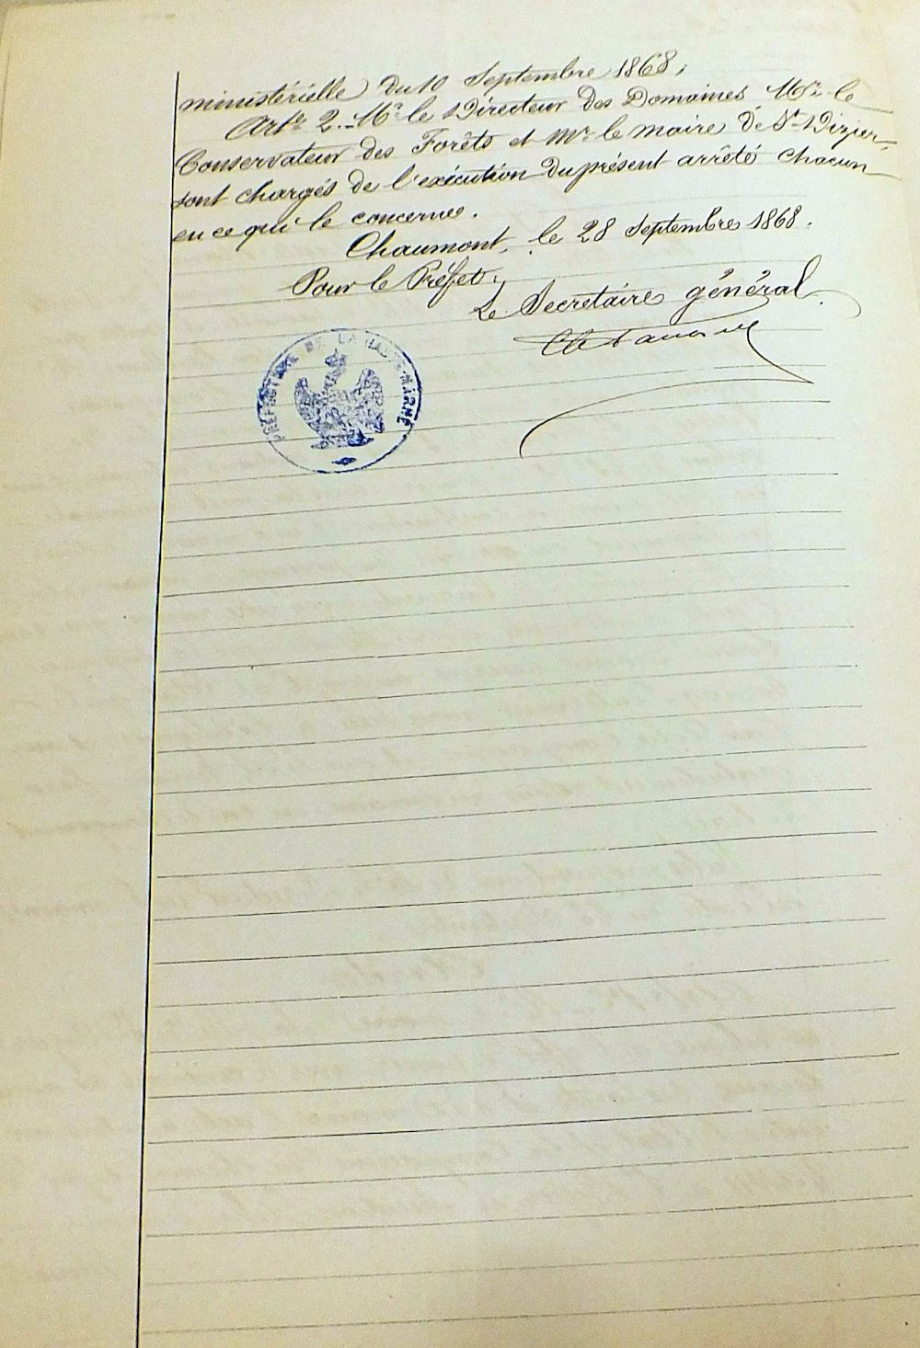 ministérielle du 10 Septembre 1868;
Art.e 2. _ Mr le Directeur des Domaines Mr le
Conservateur des Forêts et Mr le maire de St Dizier
sont chargés de l'exécution du présent arrêté chacun
en ce qui le concerne.
Chaumont, le 28 Septembre 1868.
Pour le Préfet,
Le Secrétaire général
PRÉFECTURE DE LA HAUTE-MARNE